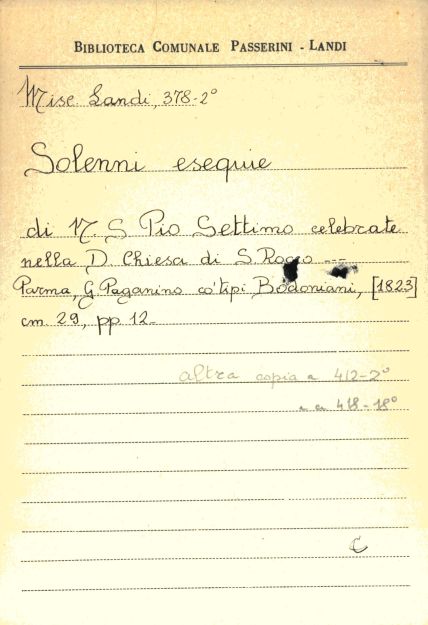 BIBLIOTECA COMUNALE PASSERINI - LANDI
Misc. Landi, 378-2°
Solenni esequie
di N. S Pio Settimo celebrate
nella D. Chiesa di S. Rocco ---
Parma, G. Paganino co' tipi Bodoniani, [1823]
cm 29, pp 12-
altra copia a 412-2°
a 418-18°
C